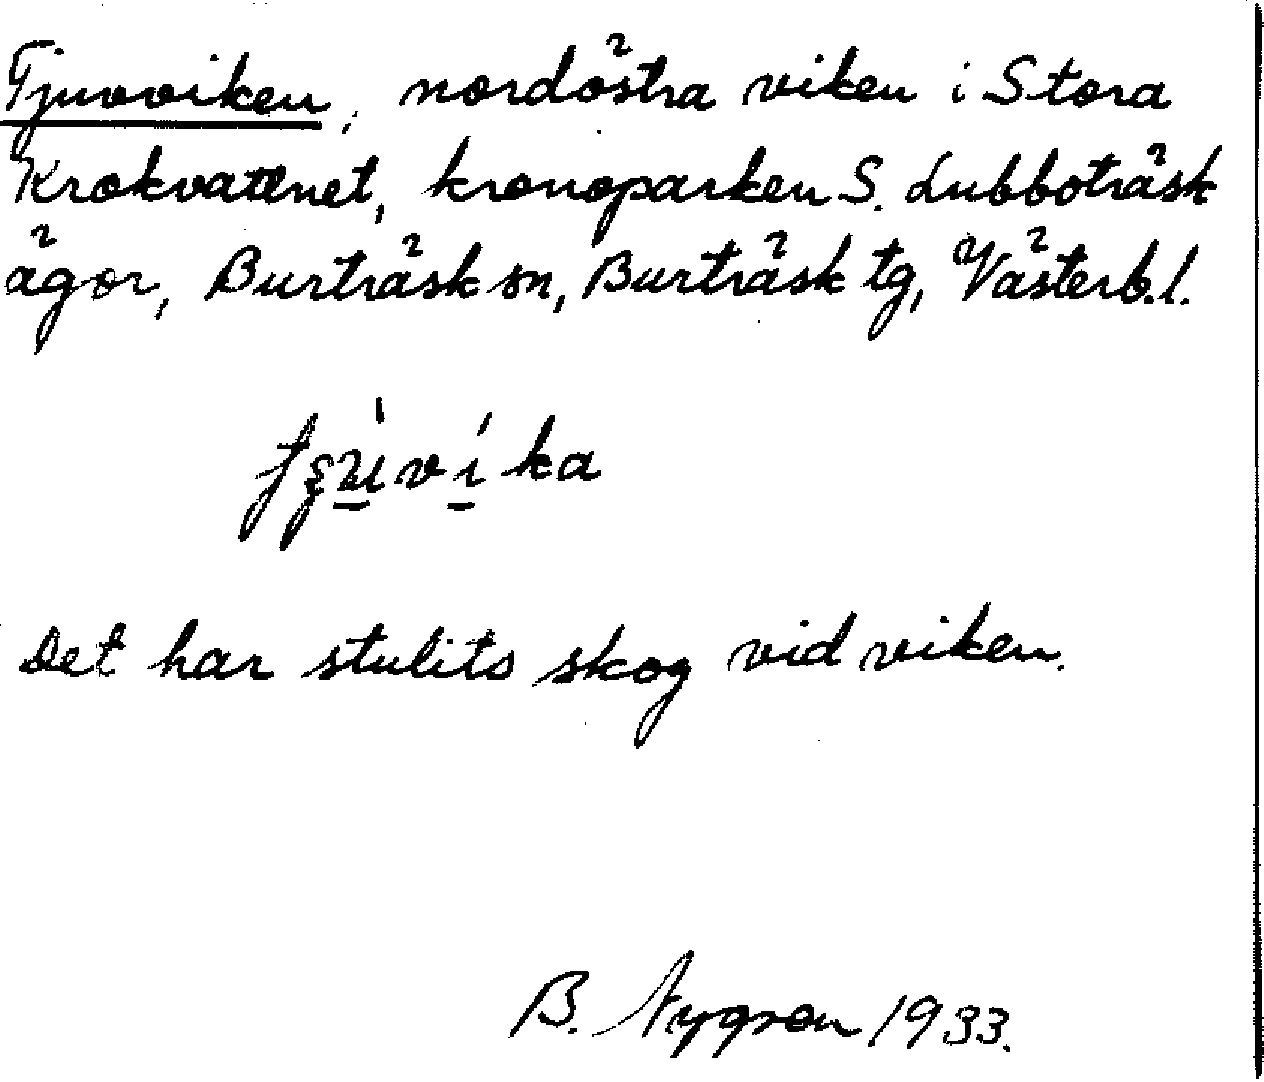 Tjuvviken, nordöstra viken i Stora
Krokvattnet, kronoparken S. Lubboträsk
ägor, Burträsk sn, Burträsk tg, Västerb.l.
Det har stulits skog vid viken.
B. Nygren 1933.